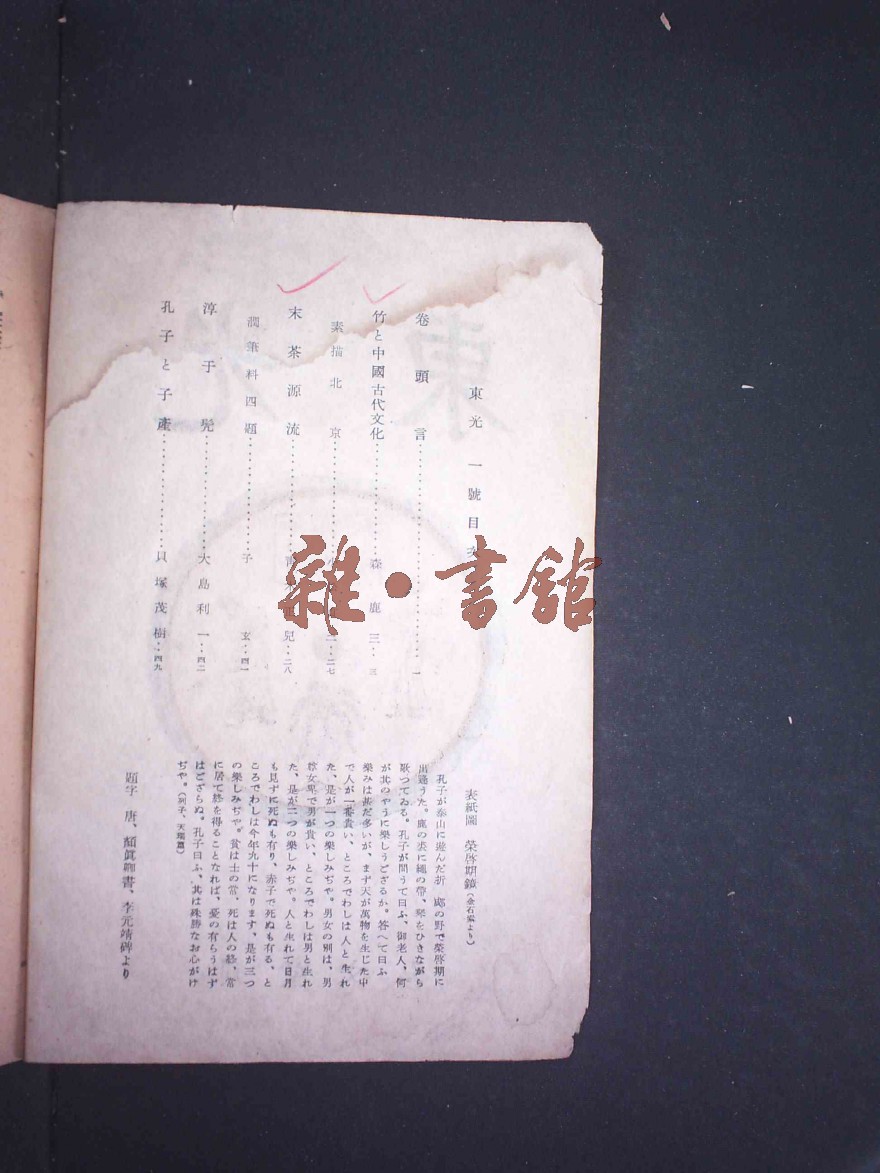 東光 一號目次
卷頭言……………………一
竹と中國古代文化……………森鹿三…三
素描北京
二七
末茶源流……………
兒…二八
潤筆料四題……………子玄…四一
淳于髡……………大島利一…四二
孔子と子產……………貝塚茂樹…四九
表紙圖 榮啓期鏡(金石索より)
孔子が泰山に遊んだ折 郕の野で榮啓期に
出逢うた。鹿の裘に繩の帶、琴をひきながら
歌つてゐる。孔子が問うて曰ふ、御老人、何
が其のやうに樂しうござるか。答へて曰ふ
樂みは甚だ多いが、まず天が萬物を生じた中
で人が一番貴い、ところでわしは人と生れ
た、是が一つの樂しみぢや。男女の別は、男
尊女卑で男が貴い、ところでわしは男と生れ
た、是が二つの樂しみぢや。人と生れて日月
も見ずに死ぬも有り、赤子で死ぬも有る、と
ころでわしは今年九十になります、是が三つ
の樂しみぢや。貧は士の常、死は人の終、常
に居て終を得ることなれば、憂の有らうはず
はござらぬ。孔子曰ふ、其は殊勝なお心がけ
ぢや。(列子、天瑞篇)
題字 唐、顏眞卿書、李元靖碑より
雜·書館